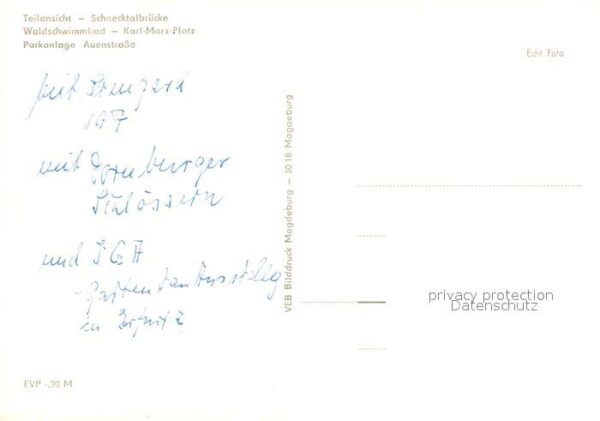 Teilansicht – Schnecktalbrücke
Waldschwimmbad – Karl-Marx-Platz
Parkanlage Auenstraße
Echt Foto
mit
197
mit Dornburger
Schlössern
und IGA
-Gartenbau Ausstellg
in
VEB Bilddruck Magdeburg – 3018 Magdeburg
privacy protection
Datenschutz
EVP -,20 M